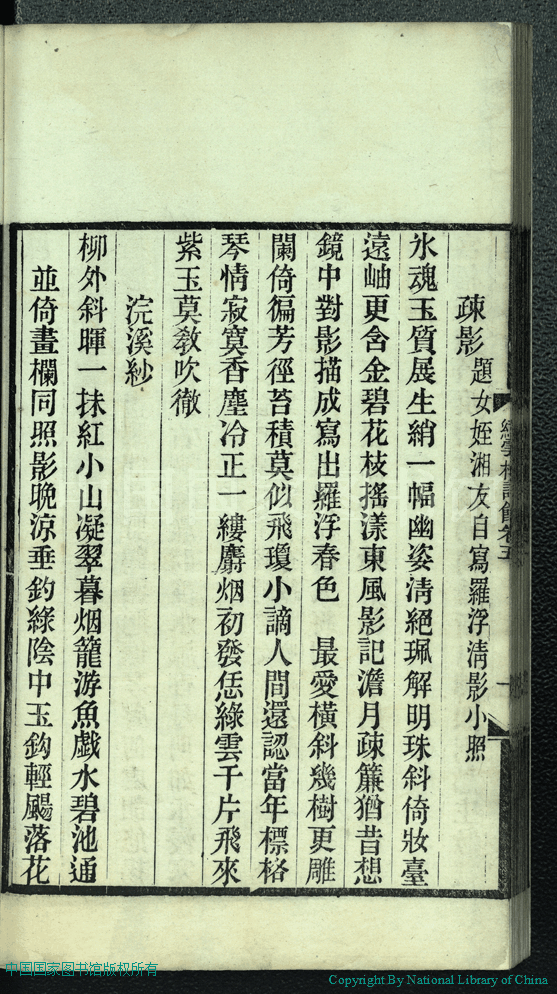 疎影題女姪湘友自寫羅浮淸影小照
氷魂玉質展生綃一幅幽姿淸絕珮解明珠斜倚妝臺
遠岫更舍金碧花枝搖漾東風影記澹月疎簾猶昔想
鏡中對影描成寫出羅浮春色 最愛橫斜幾樹更雕
闌倚徧芳徑苔積莫似飛瓊小謫人間還認當年標格
琴情寂寞香塵冷正一縷麝烟初發恁綠雲千片飛來
紫玉莫敎吹徹
浣溪紗
柳外斜暉一抹紅小山凝翠暮烟籠游魚戲水碧池通
並倚畫欄同照影晚凉垂釣綠陰中玉鈎輕颺落花
卷五
一
中国国家图书馆版权所有
Copyright By National Library of China